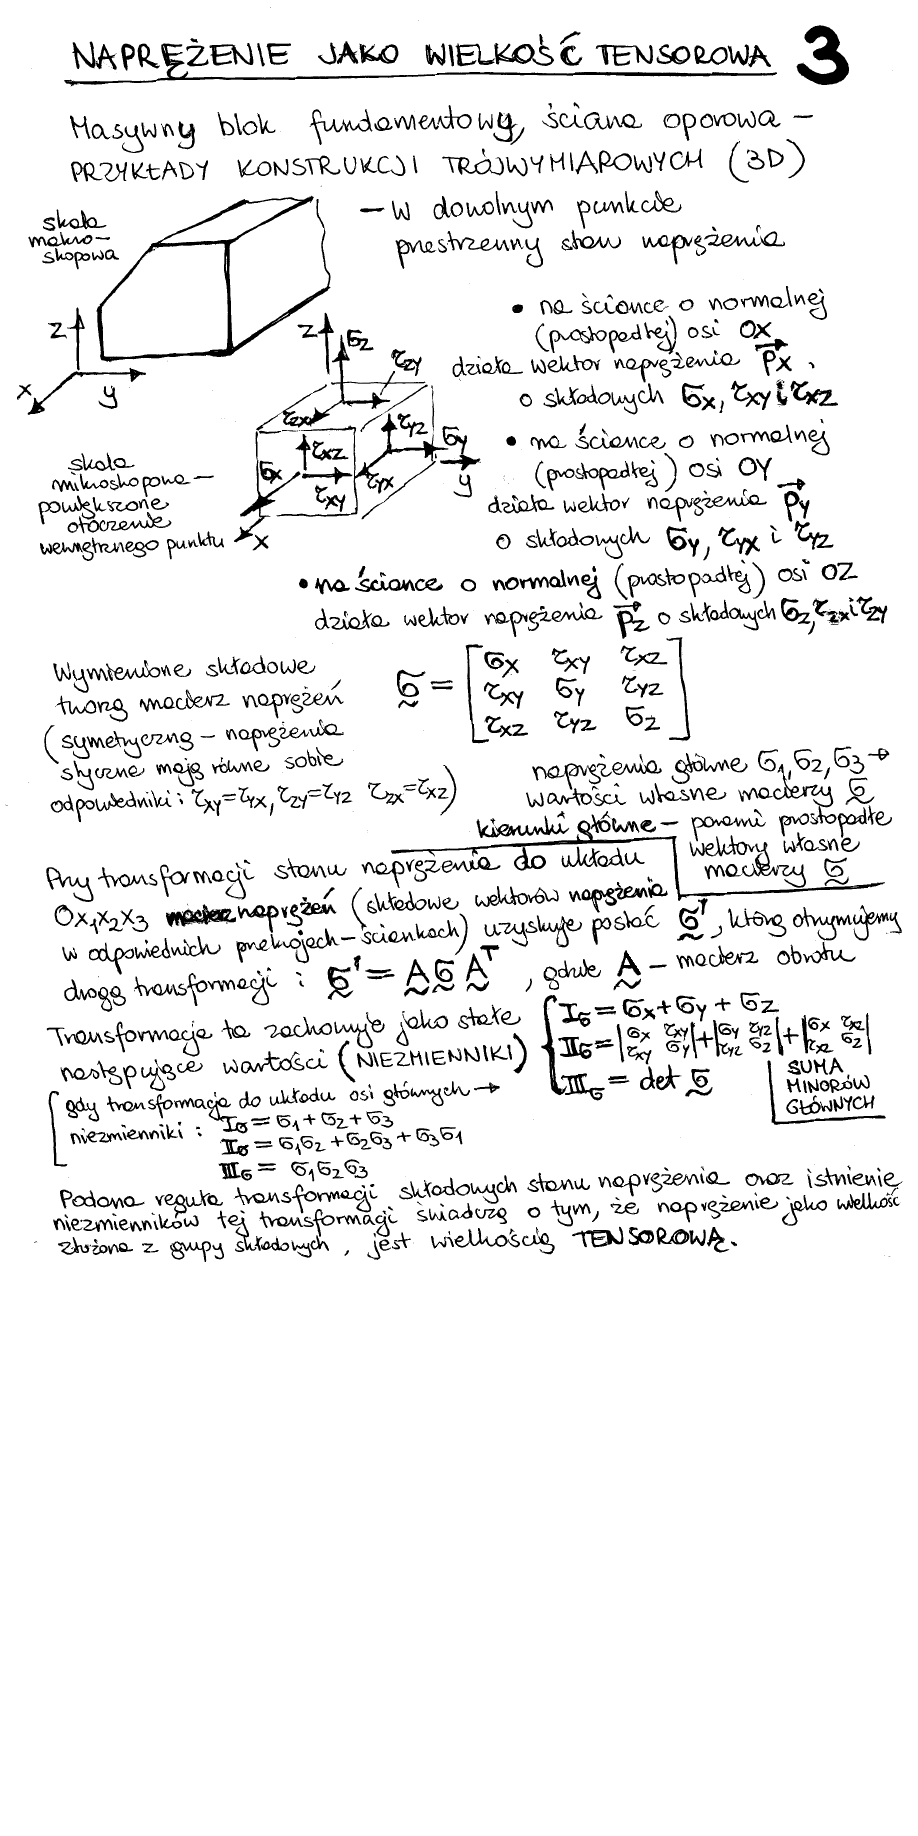 NAPRĘŻENIE JAKO WIELKOŚĆ TENSOROWA 3
Masywny blok fundamentowy, ściana oporowa –
PRZYKŁADY KONSTRUKCJI TRÓJWYMIAROWYCH (3D)
– w dowolnym punkcie
przestrzenny stan naprężenia
skala
makro–
skopowa
z
x
y
• na ściance o normalnej
(prostopadłej) osi OX
działa wektor naprężenia p⃗x,
o składowych σx, τxy i τxz
• na ściance o normalnej
(prostopadłej) osi OY
działa wektor naprężenia p⃗y
o składowych σy, τyx i τyz
z
σz
τzy
τzx
τxz
τyz
σy
σx
τxy
τyx
y
x
skala
mikroskopowa –
powiększone
otoczenie
wewnętrznego punktu
• na ściance o normalnej (prostopadłej) osi OZ
działa wektor naprężenia p⃗z o składowych σz, τzx i τzy
Wymienione składowe
tworzą macierz naprężeń
(symetryczną – naprężenia
styczne mają równe sobie
odpowiedniki: τxy=τyx, τzy=τyz τzx=τxz)
σ̰ = [σx τxy τxz
τxy σy τyz
τxz τyz σz]
naprężenia główne σ1, σ2, σ3 →
wartości własne macierzy σ̰
kierunki główne – parami prostopadłe
wektory własne
macierzy σ̰
Przy transformacji stanu naprężenia do układu
Ox1x2x3 macierz naprężeń (składowe wektorów naprężenia
w odpowiednich przekrojach – ściankach) uzyskuje postać σ̰', którą otrzymujemy
drogą transformacji: σ̰' = A̰ σ̰ A̰ᵀ, gdzie A̰ – macierz obrotu
Transformacja ta zachowuje jako stałe
następujące wartości (NIEZMIENNIKI)
Iσ = σx + σy + σz
IIσ = |σx τxy; τxy σy| + |σy τyz; τyz σz| + |σx τxz; τxz σz|
IIIσ = det σ̰
SUMA
MINORÓW
GŁÓWNYCH
gdy transformacja do układu osi głównych →
niezmienniki: Iσ = σ1 + σ2 + σ3
IIσ = σ1σ2 + σ2σ3 + σ3σ1
IIIσ = σ1σ2σ3
Podana reguła transformacji składowych stanu naprężenia oraz istnienie
niezmienników tej transformacji świadczą o tym, że naprężenie jako wielkość
złożona z grupy składowych, jest wielkością TENSOROWĄ.